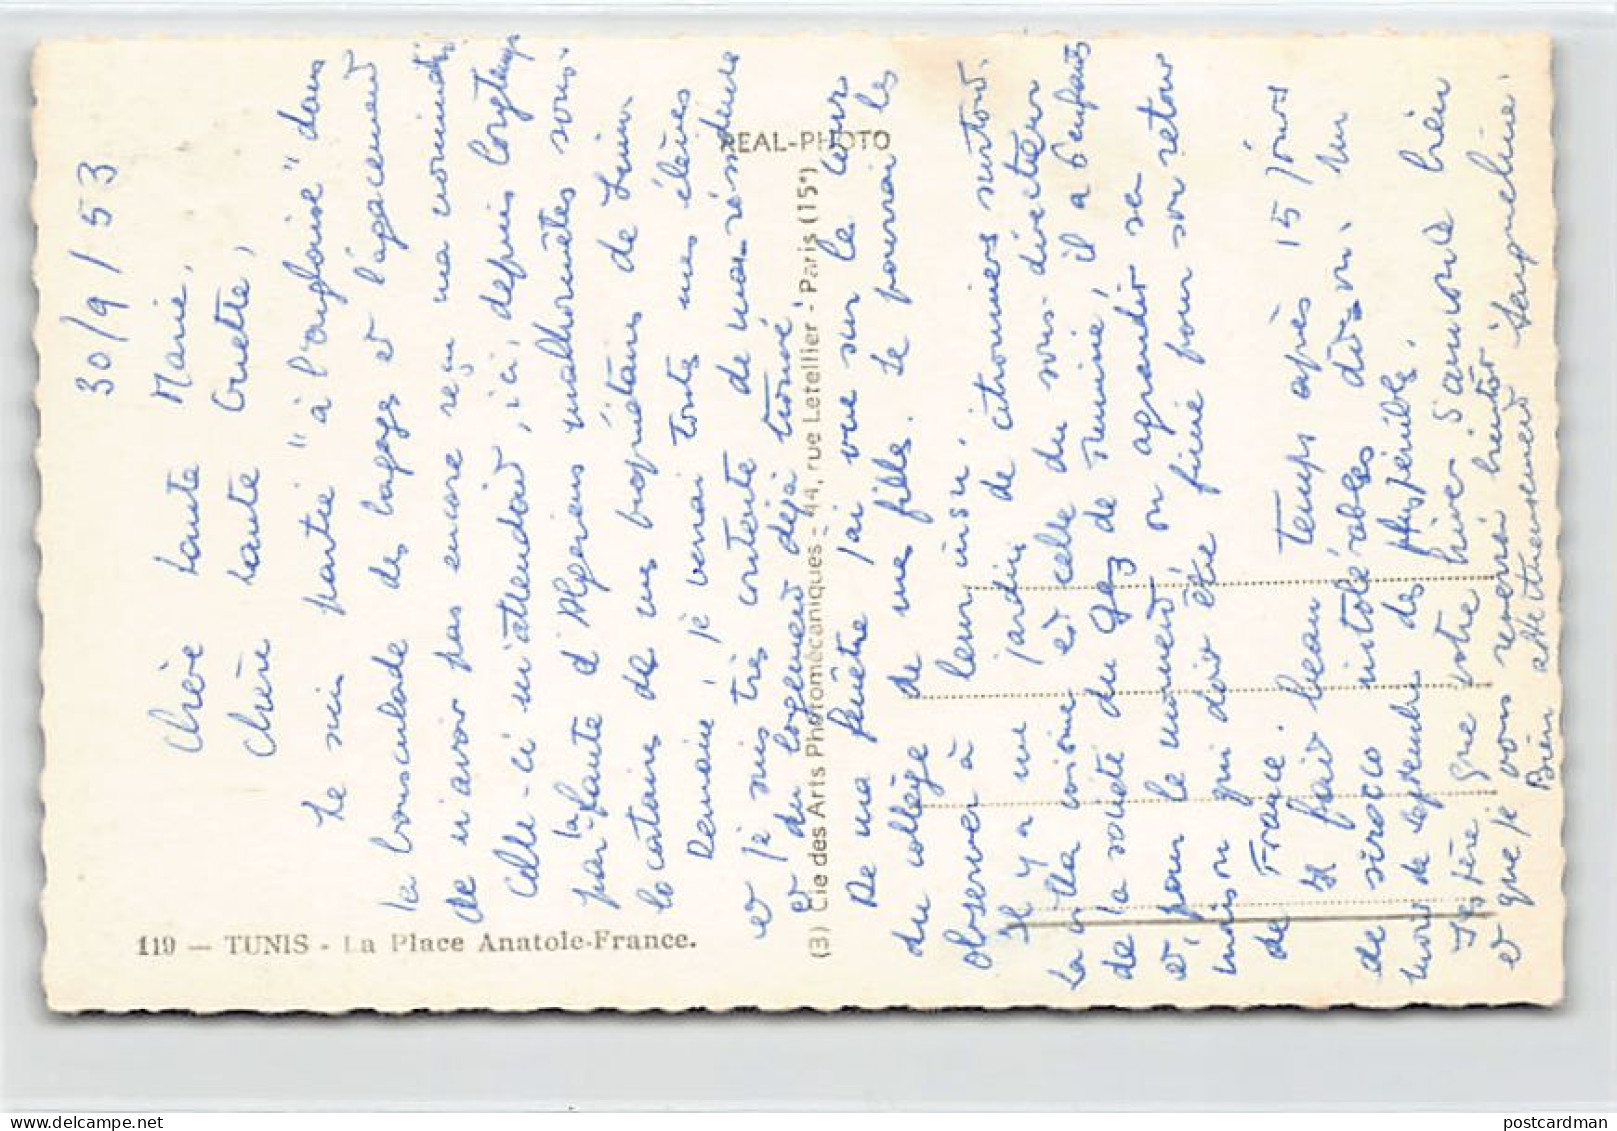 30/9/53
Chère tante Marie,
Chère tante Guette,
Je suis partie "à l'anglaise" dans
la bousculade des bagages et l'agacement
de n'avoir pas encore reçu ma nominati
Celle-ci m'attendait, ici, depuis longtemps
par la faute d'Algériens malhonnêtes sous-
locataires de nos propriétaires de
Demain, je verrai toutes mes élèves
et je suis très contente de ma résidence
et du logement déjà trouvé.
De ma fenêtre j'ai vue sur la cour
du collège de mes filles. Je pourrai les
observer à leur insu.
Il y a un jardin de citronniers surtout.
La villa voisine est celle du sous-directeur
de la société du gaz de il a 6 enfants
et, pour le moment, on agrandit sa
maison qui doit être finie pour son retour
de France.
Il fait beau temps après 15 jours
de sirocco intolérables dit-on. Un
mois de septembre des plus pénibles.
J'espère que votre hiver s'annonce bien
et que je vous reverrai bientôt.
Bien affectueusement Jacqueline.
REAL-PHOTO
(3) Cie des Arts Photomécaniques - 44, rue Letellier - Paris (15e)
119 — TUNIS - La Place Anatole-France.
postcardman